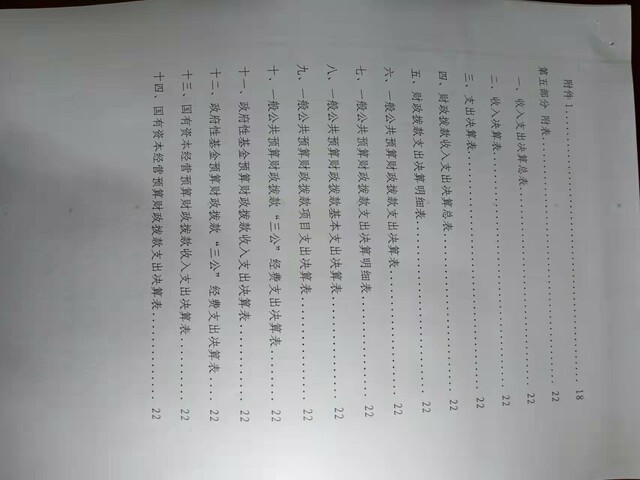 附件1............................................18
第五部分 附表....................................22
一、收入支出决算总表............................22
二、收入决算表..................................22
三、支出决算表..................................22
四、财政拨款收入支出决算总表....................22
五、财政拨款支出决算明细表......................22
六、一般公共预算财政拨款支出决算表..............22
七、一般公共预算财政拨款支出决算明细表..........22
八、一般公共预算财政拨款基本支出决算表..........22
九、一般公共预算财政拨款项目支出决算表..........22
十、一般公共预算财政拨款“三公”经费支出决算表....22
十一、政府性基金预算财政拨款收入支出决算表......22
十二、政府性基金预算财政拨款“三公”经费支出决算表....22
十三、国有资本经营预算财政拨款收入支出决算表....22
十四、国有资本经营预算财政拨款支出决算表........22